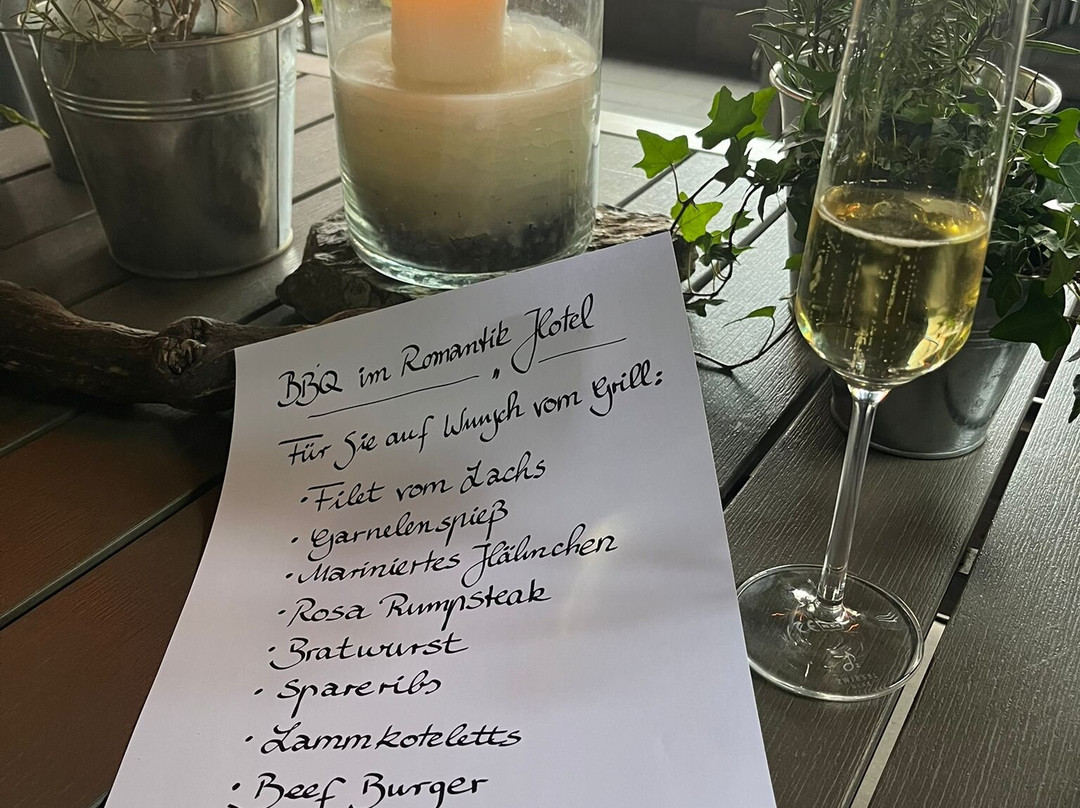 BBQ im Romantik Hotel
Für Sie auf Wunsch vom Grill:
• Filet vom Lachs
• Garnelenspieß
• Mariniertes Hähnchen
• Rosa Rumpsteak
• Bratwurst
• Spareribs
• Lammkoteletts
• Beef Burger